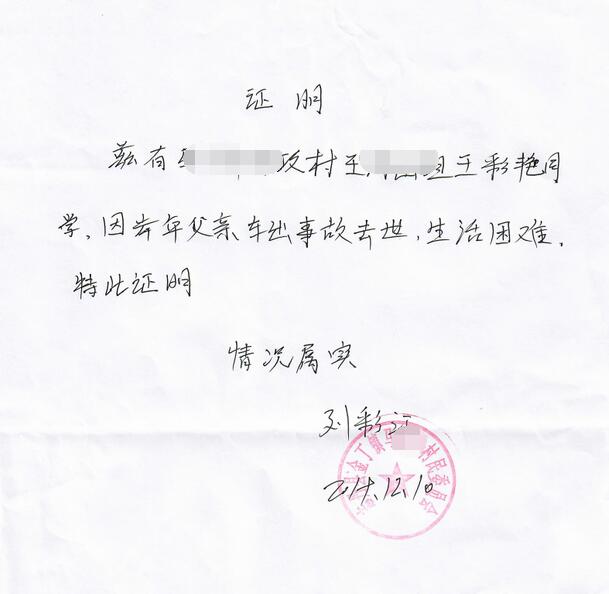 证明
兹有 政村王 王彩艳同
学，因去年父亲车出事故去世，生活困难，
特此证明
情况属实
刘彩
金丁镇 村民委员会
12.10